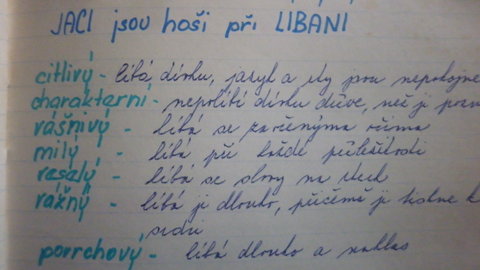 JACÍ jsou hoši při LIBANI
citlivý - líbá dívku, jazyk a rty jsou nepokojné
charakterní - nepolíbí dívku dříve, než ji pozn
vášnivý - líbá se zavřenýma očima
milý - líbá při každé příležitosti
veselý - líbá se slovy na rtech
vážný - líbá ji dlouho, přičemž ji tiskne k
srdci
povrchový - líbá dlouho a nahlas